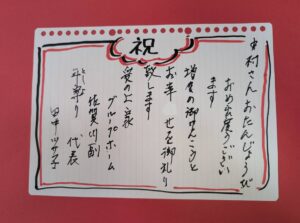 祝
中村さん おたんじょうび
おめで度うござい
ます
増々の御けんこうと
お幸せを御祈り
致します
愛の上 家
グループホーム
佐賀川副
代表